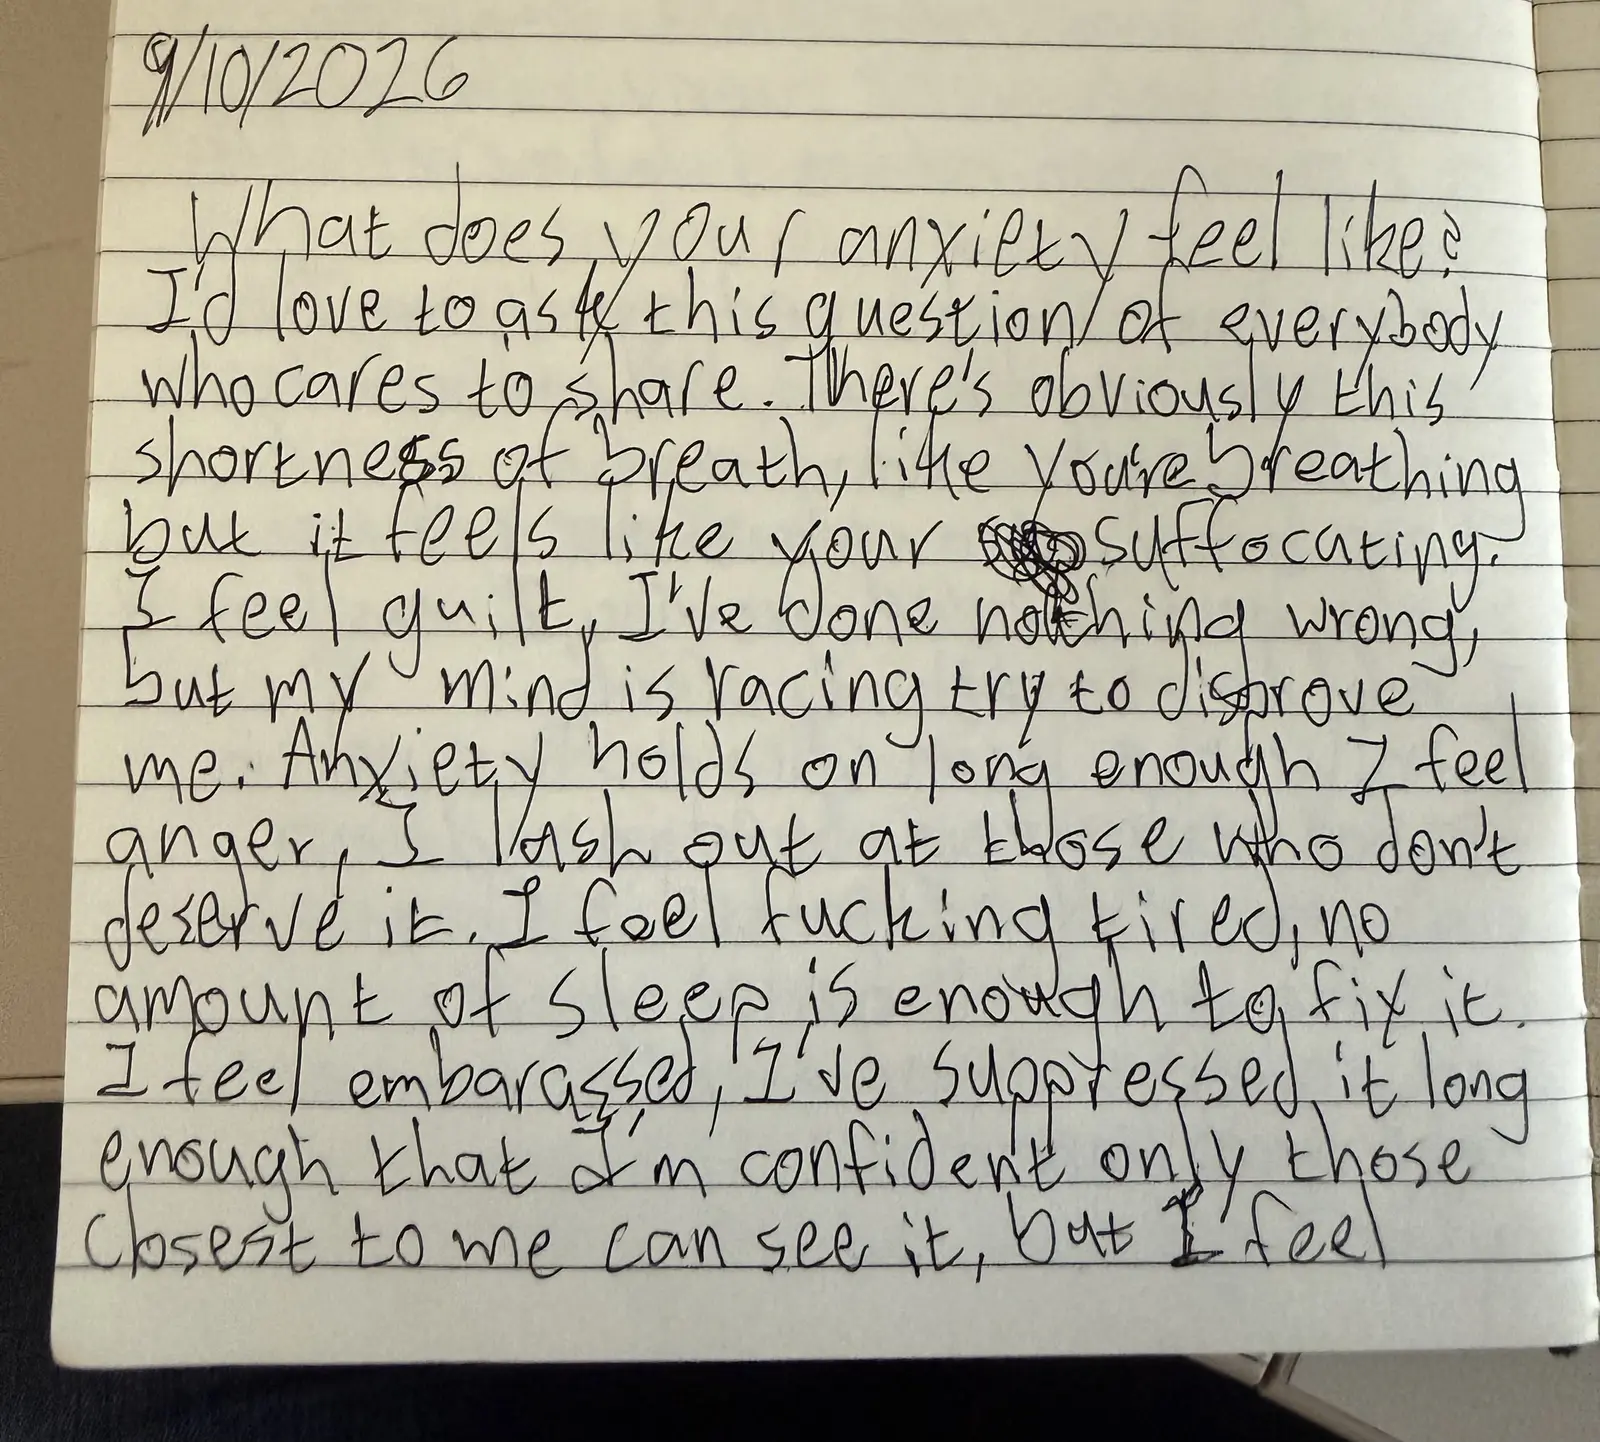 9/10/2026
What does your anxiety feel like?
I'd love to ask this question of everybody
who cares to share. There's obviously this
shortness of breath, like you're breathing
but it feels like your suffocating.
I feel guilt, I've done nothing wrong,
but my mind is racing try to disprove
me. Anxiety holds on long enough I feel
anger, I lash out at those who don't
deserve it. I feel fucking tired, no
amount of sleep is enough to fix it.
I feel embarassed, I've suppressed it long
enough that I'm confident only those
closest to me can see it, but I feel